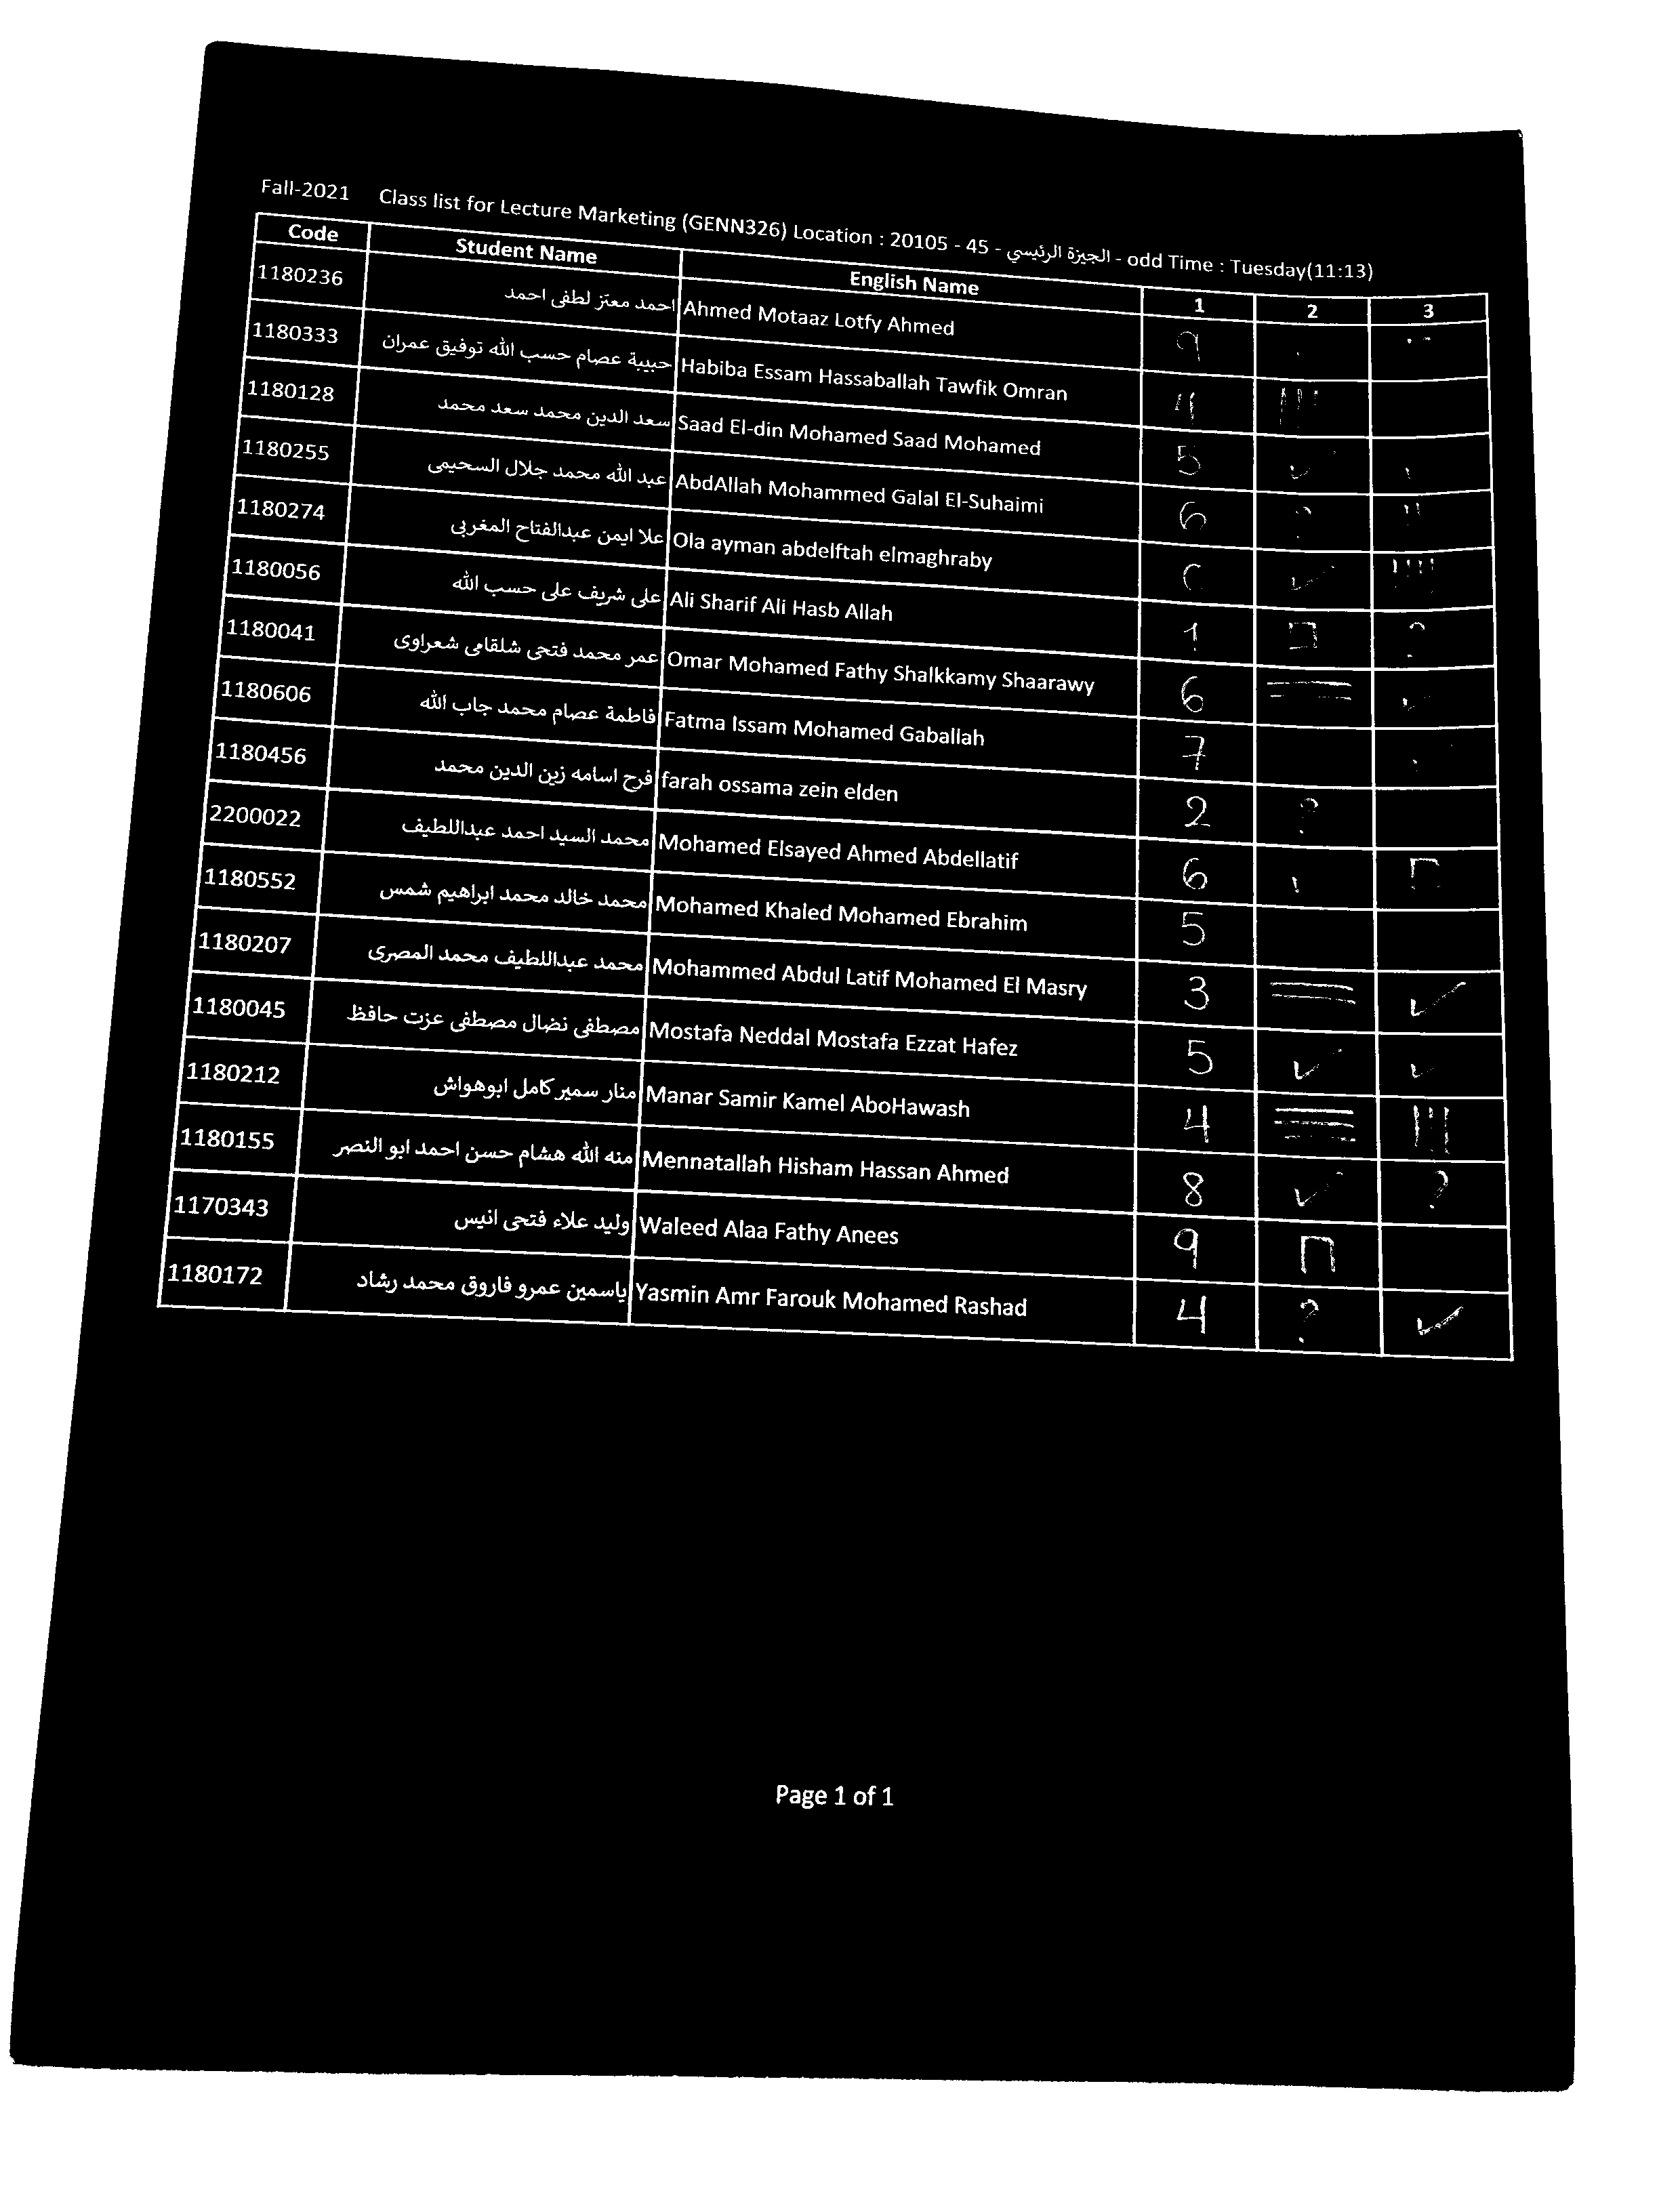 Fall-2021 Class list for Lecture Marketing (GENN326) Location : 20105 - 45 - الجيزة الرئيسي - odd Time : Tuesday(11:13)
Code Student Name English Name 1 2 3
1180236 احمد معتز لطفى احمد Ahmed Motaaz Lotfy Ahmed 9
1180333 حبيبة عصام حسب الله توفيق عمران Habiba Essam Hassaballah Tawfik Omran 4
1180128 سعد الدين محمد سعد محمد Saad El-din Mohamed Saad Mohamed 5 ✓
1180255 عبد الله محمد جلال السحيمى AbdAllah Mohammed Galal El-Suhaimi 6 ?
1180274 علا ايمن عبدالفتاح المغربى Ola ayman abdelftah elmaghraby ✓
1180056 على شريف على حسب الله Ali Sharif Ali Hasb Allah 1 ?
1180041 عمر محمد فتحى شلقامى شعراوى Omar Mohamed Fathy Shalkkamy Shaarawy 6 ✓
1180606 فاطمة عصام محمد جاب الله Fatma Issam Mohamed Gaballah 7
1180456 فرح اسامه زين الدين محمد farah ossama zein elden 2 ?
2200022 محمد السيد احمد عبداللطيف Mohamed Elsayed Ahmed Abdellatif 6
1180552 محمد خالد محمد ابراهيم شمس Mohamed Khaled Mohamed Ebrahim 5
1180207 محمد عبداللطيف محمد المصرى Mohammed Abdul Latif Mohamed El Masry 3 ✓
1180045 مصطفى نضال مصطفى عزت حافظ Mostafa Neddal Mostafa Ezzat Hafez 5 ✓ ✓
1180212 منار سمير كامل ابوهواش Manar Samir Kamel AboHawash 4
1180155 منه الله هشام حسن احمد ابو النصر Mennatallah Hisham Hassan Ahmed 8 ✓ ?
1170343 وليد علاء فتحى انيس Waleed Alaa Fathy Anees 9
1180172 ياسمين عمرو فاروق محمد رشاد Yasmin Amr Farouk Mohamed Rashad 4 ? ✓
Page 1 of 1